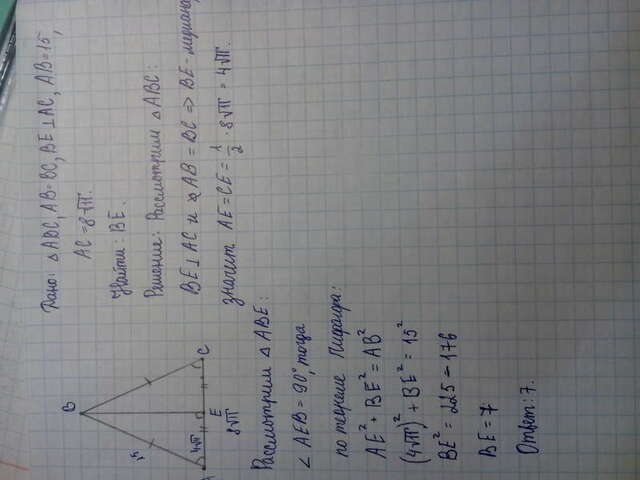 Дано: △ABC, AB=BC, BE⊥AC, AB=15,
AC=8√11.
Найти: BE.
Решение: Рассмотрим △ABC:
BE⊥AC и AB=BC => BE-медиана,
значит AE=CE=1/2·8√11=4√11.
B
15
4√11
A
E
C
8√11
Рассмотрим △ABE:
∠AEB=90°, тогда
по теореме Пифагора:
AE²+BE²=AB²
(4√11)²+BE²=15²
BE²=225-176
BE=7
Ответ: 7.